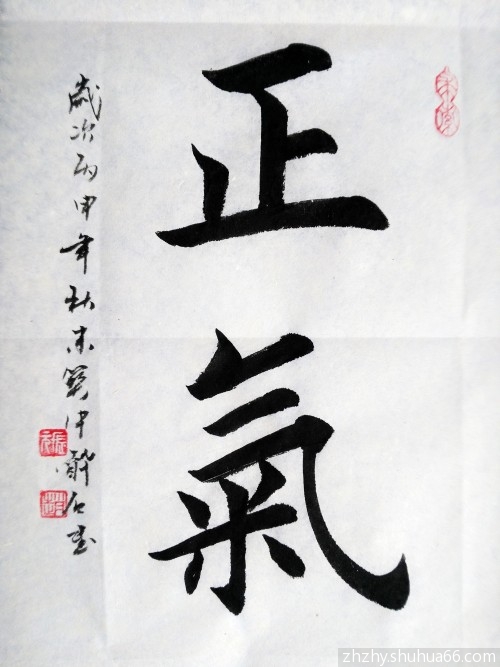 正氣
歲次丙申年秋末
酔石書
zhzhy.shuhua66.com